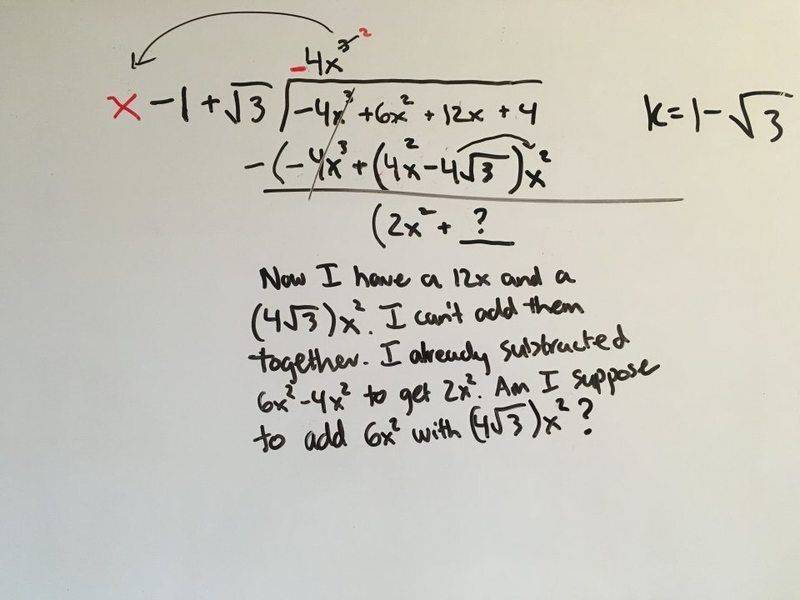 -4x³ 2
x - 1 + √3 -4x³ + 6x² + 12x + 4 k = 1 - √3
- (-4x³ + (4x² - 4√3)x²
(2x² + ?
Now I have a 12x and a
(4√3)x². I can't add them
together. I already subtracted
6x² - 4x² to get 2x². Am I suppose
to add 6x² with (4√3)x²?